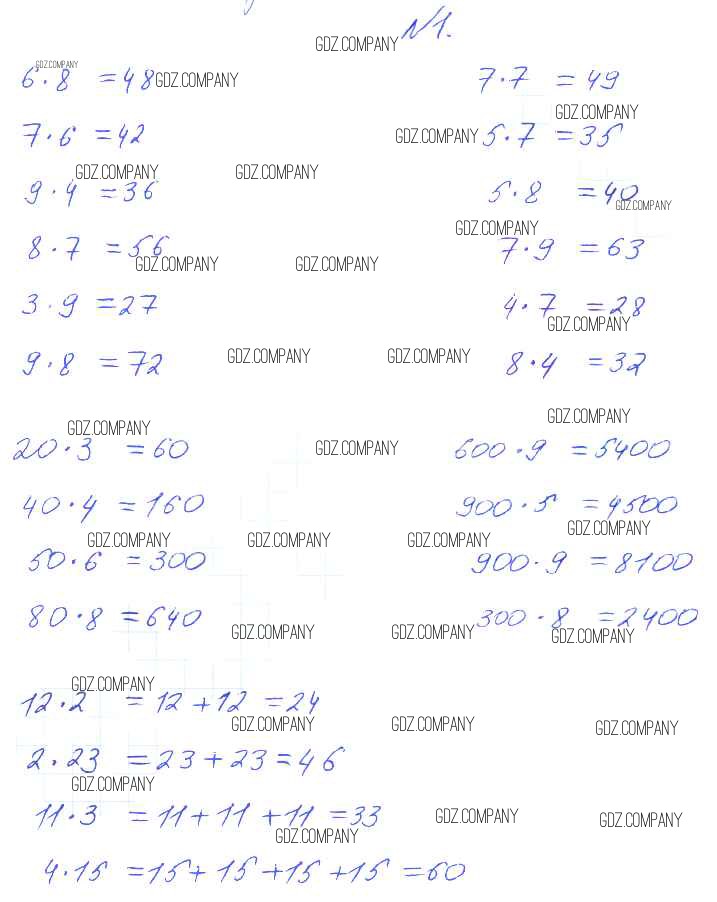 №1.
GDZ.COMPANY
GDZ.COMPANY
6·8 =48 GDZ.COMPANY 7·7 =49
GDZ.COMPANY
7·6 =42 GDZ.COMPANY 5·7 =35
GDZ.COMPANY GDZ.COMPANY
9·4 =36 5·8 =40
GDZ.COMPANY
GDZ.COMPANY
8·7 =56 7·9 =63
GDZ.COMPANY GDZ.COMPANY
3·9 =27 4·7 =28
GDZ.COMPANY
9·8 =72 GDZ.COMPANY GDZ.COMPANY 8·4 =32
GDZ.COMPANY
GDZ.COMPANY
20·3 =60 GDZ.COMPANY 600·9 =5400
40·4 =160 900·5 =4500
GDZ.COMPANY
GDZ.COMPANY GDZ.COMPANY GDZ.COMPANY
50·6 =300 900·9 =8100
80·8 =640 300·8 =2400
GDZ.COMPANY GDZ.COMPANY GDZ.COMPANY
GDZ.COMPANY
12·2 =12+12=24
GDZ.COMPANY GDZ.COMPANY GDZ.COMPANY
2·23 =23+23=46
GDZ.COMPANY
11·3 =11+11+11=33 GDZ.COMPANY GDZ.COMPANY
GDZ.COMPANY
4·15 =15+15+15+15=60